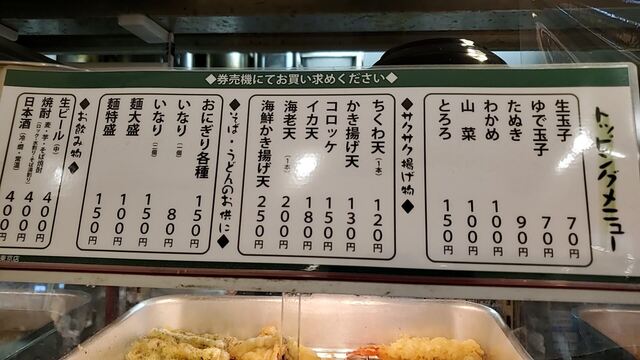 ◆券売機にてお買い求めください◆
トッピングメニュー
生玉子 70円
ゆで玉子 70円
たぬき 90円
わかめ 100円
山菜 100円
とろろ 150円
◆サクサク揚げ物◆
ちくわ天(1本) 120円
かき揚げ天 130円
コロッケ 150円
イカ天 180円
海老天(1本) 200円
海鮮かき揚げ天 250円
◆そば・うどんのお供に◆
おにぎり各種 150円
いなり(一個) 80円
いなり(二個) 150円
麺大盛 100円
麺特盛 150円
◆お飲み物◆
生ビール(中) 400円
焼酎 麦・芋・そば焼酎 (ロック・水割り・そば湯割り) 400円
日本酒(冷・燗・常温) 400円